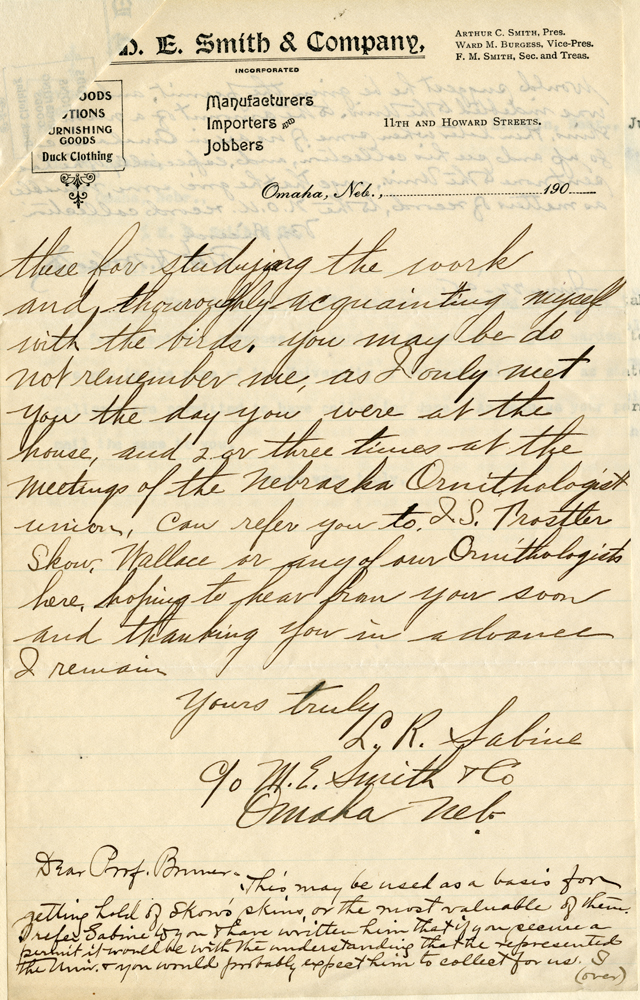 D. E. Smith & Company,
INCORPORATED
ARTHUR C. SMITH, Pres.
WARD M. BURGESS, Vice-Pres.
F. M. SMITH, Sec. and Treas.
OODS
OTIONS
URNISHING
GOODS
Duck Clothing
Manufacturers
Importers and
Jobbers
11TH AND HOWARD STREETS.
Omaha, Neb., 190
these for studying the work
and thouroughly acquainting myself
with the birds. you may be do
not remember me, as I only met
you the day you were at the
house, and 2 or three times at the
meetings of the Nebraska Ornithologist
union, Can refer you to, I.S. Trostler
Skow, Wallace or any of our Ornithologists
here, hoping to hear from you soon
and thanking you in advance
I remain
Yours truly
L. R. Sabine
c/o M. E. Smith & Co
Omaha Neb.
Dear Prof. Bruner-
This may be used as a basis for
getting hold of Skow's skins, or the most valuable of them.
I refer Sabine to you & have written him that if you secure a
permit it would be with the understanding that he represented
the Univ. & you would probably expect him to collect for us. S
(over)